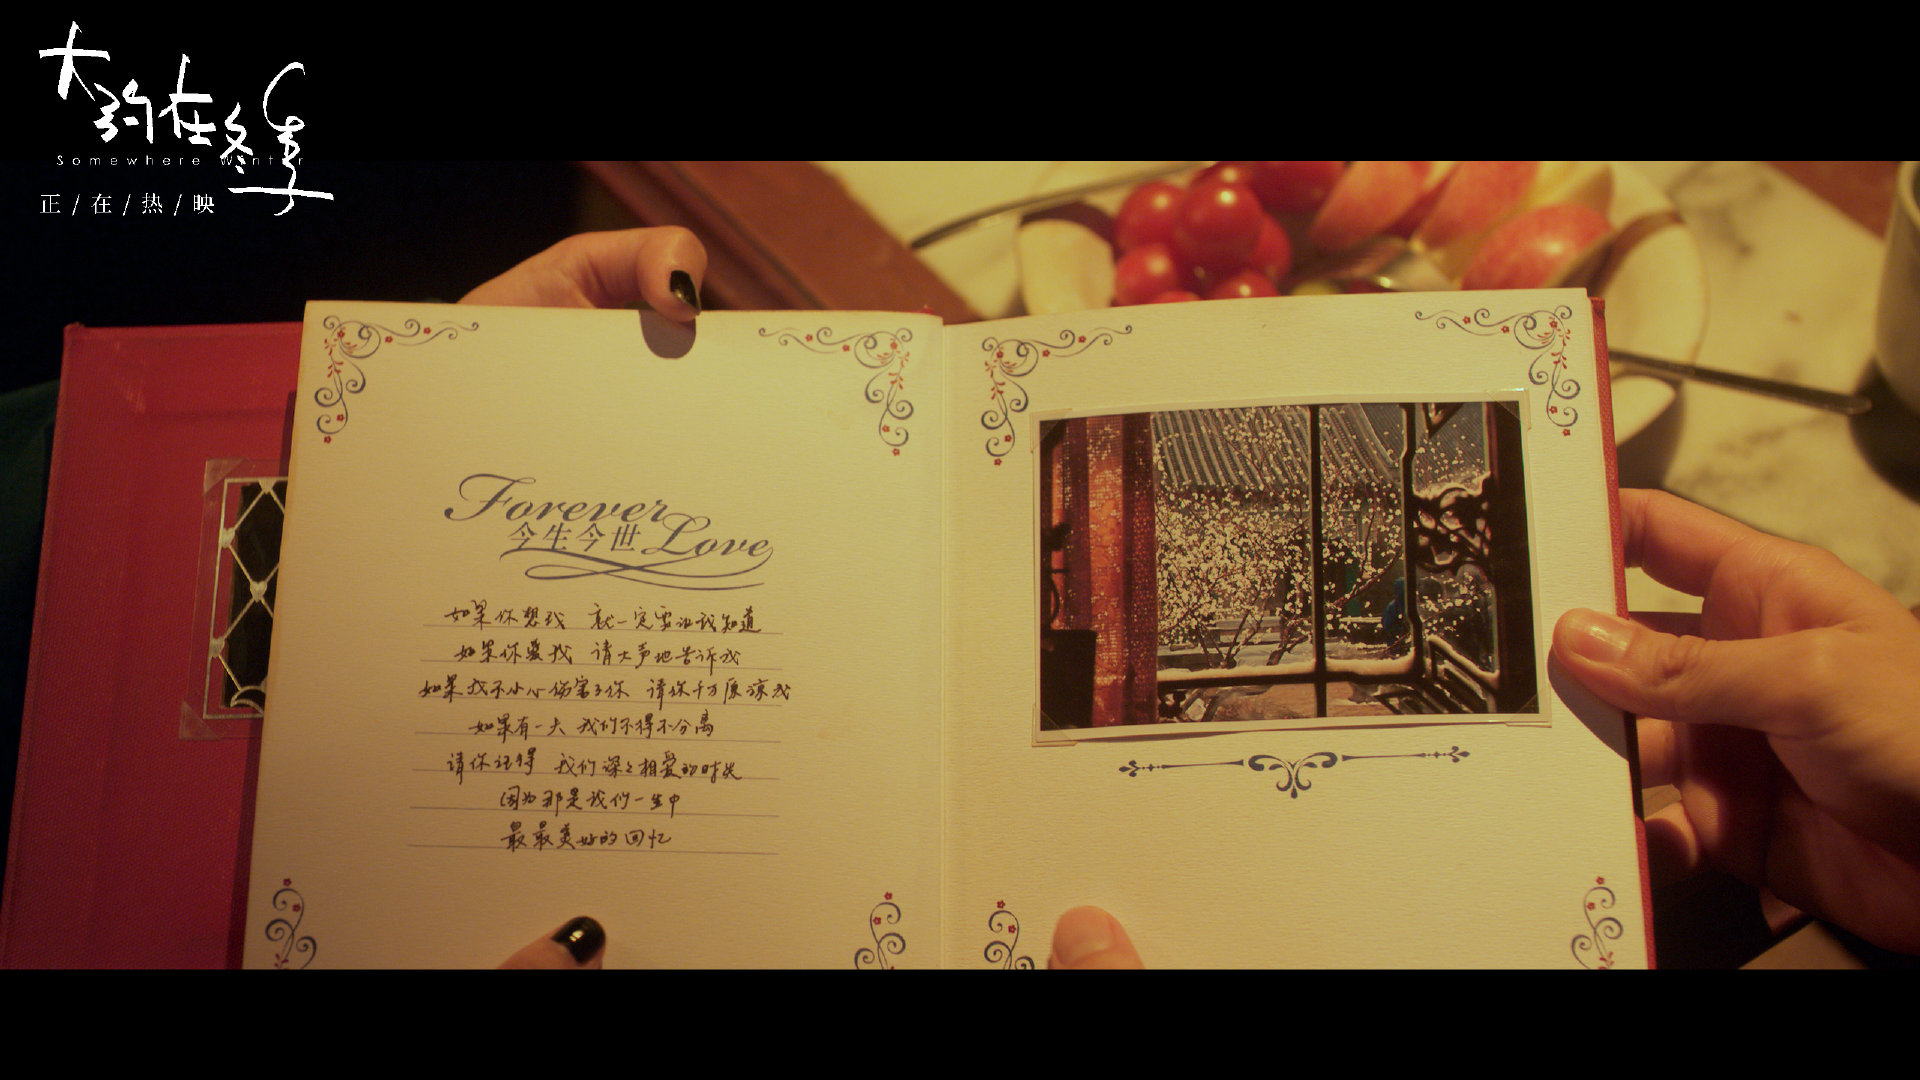 大约在冬季
Somewhere Winter
正/在/热/映
Forever
今生今世 Love
如果你想我 就一定要让我知道
如果你爱我 请大声地告诉我
如果我不小心伤害了你 请你千万原谅我
如果有一天 我们不得不分离
请你记得 我们深深相爱的时光
因为那是我们一生中
最最美好的回忆